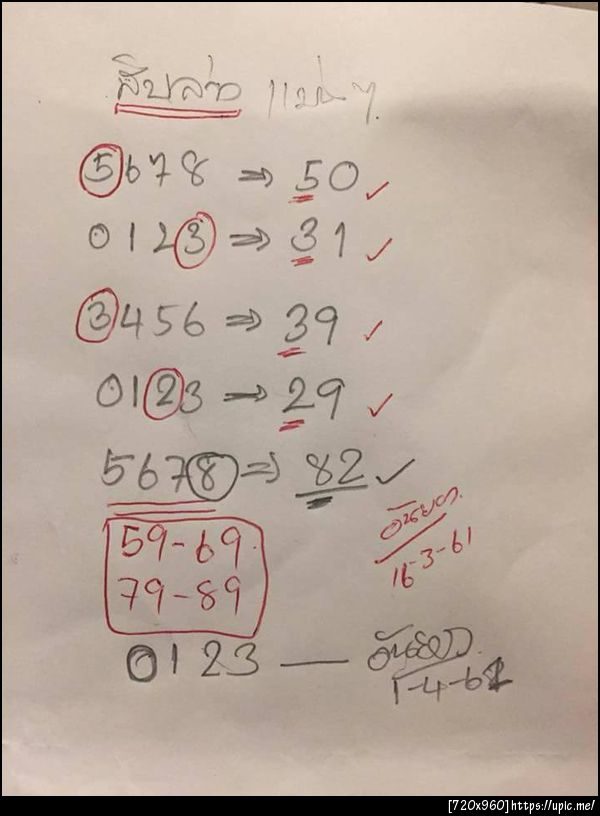 สิบล่าง แม่นๆ
5678 ⇒ 50 ✓
0123 ⇒ 31 ✓
3456 ⇒ 39 ✓
0123 → 29 ✓
5678 ⇒ 82 ✓
59-69
79-89
16-3-61
0123 —
1-4-61
[720x960]https://upic.me/